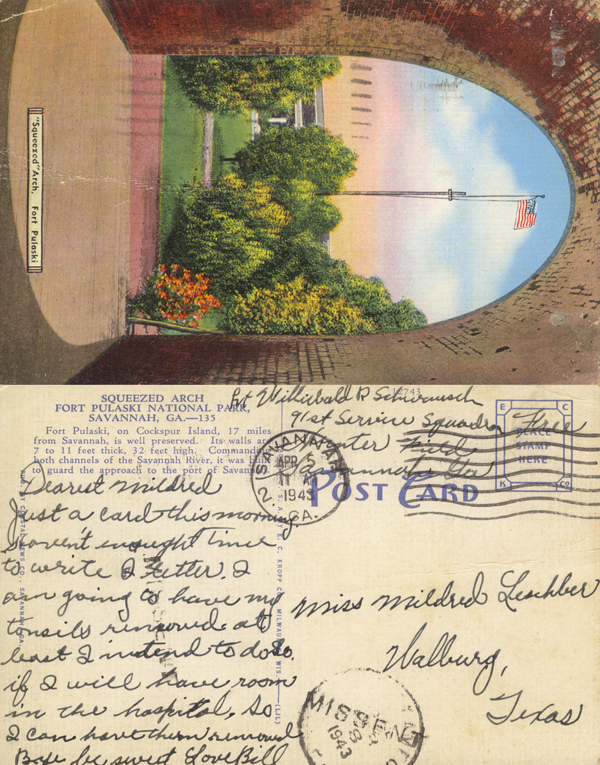 "Squeezed" Arch, Fort Pulaski
SQUEEZED ARCH
FORT PULASKI NATIONAL PARK,
SAVANNAH, GA.—135
Fort Pulaski, on Cockspur Island, 17 miles
from Savannah, is well preserved. Its walls are
7 to 11 feet thick, 32 feet high. Commanding
both channels of the Savannah River, it was built
to guard the approach to the port of Savannah.
Pvt Williebald R Schwausch
91st Service Squadron
Hunter Field
Savannah Ga
Free
E C
PLACE
STAMP
HERE
K CO
SAVANNAH
APR 5
1943
GA.
2
POST CARD
Dearest Mildred
Just a card this morning.
Haven't enought time
to write a letter. I
am going to have my
tonsils removed at
least I intend to do so.
if I will have room
in the hospital. So
I can have them removed
be sweet Love Bill
Miss Mildred Leschber
Walburg,
Texas
MISSENT
8
1943
E. C. KROPP CO., MILWAUKEE, WIS.